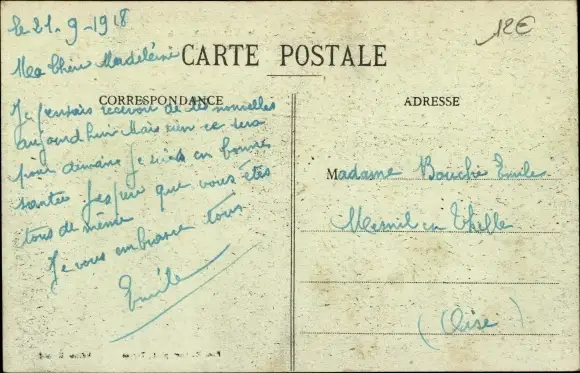 le 21-9-1918
12€
Ma Chère Madeleine
CARTE POSTALE
CORRESPONDANCE
ADRESSE
Je pensais recevoir de tes nouvelles
aujourd'hui Mais rien ce sera
pour demain Je suis en bonne
santée J'espère que vous êtes
tous de même
Je vous embrasse tous
Emile
Madame Bouché Emile
Mesnil en Thelle
(Oise)